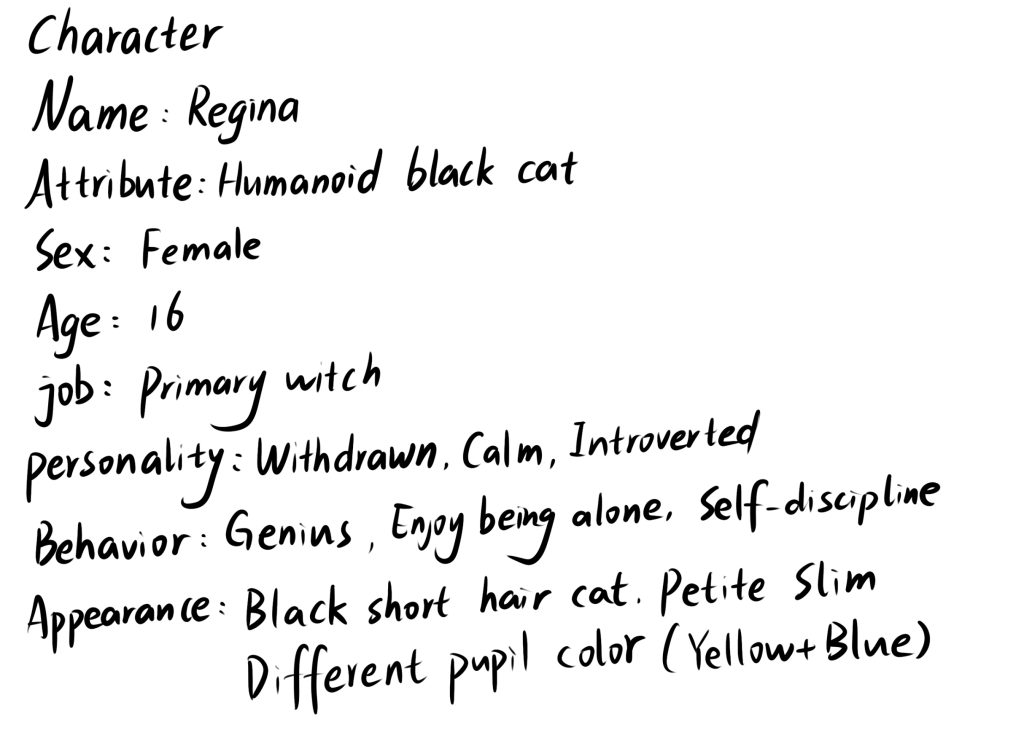 Character
Name: Regina
Attribute: Humanoid black cat
Sex: Female
Age: 16
job: Primary witch
Personality: Withdrawn, Calm, Introverted
Behavior: Genius, Enjoy being alone, Self-discipline
Appearance: Black short hair cat. Petite Slim
Different pupil color (Yellow+Blue)